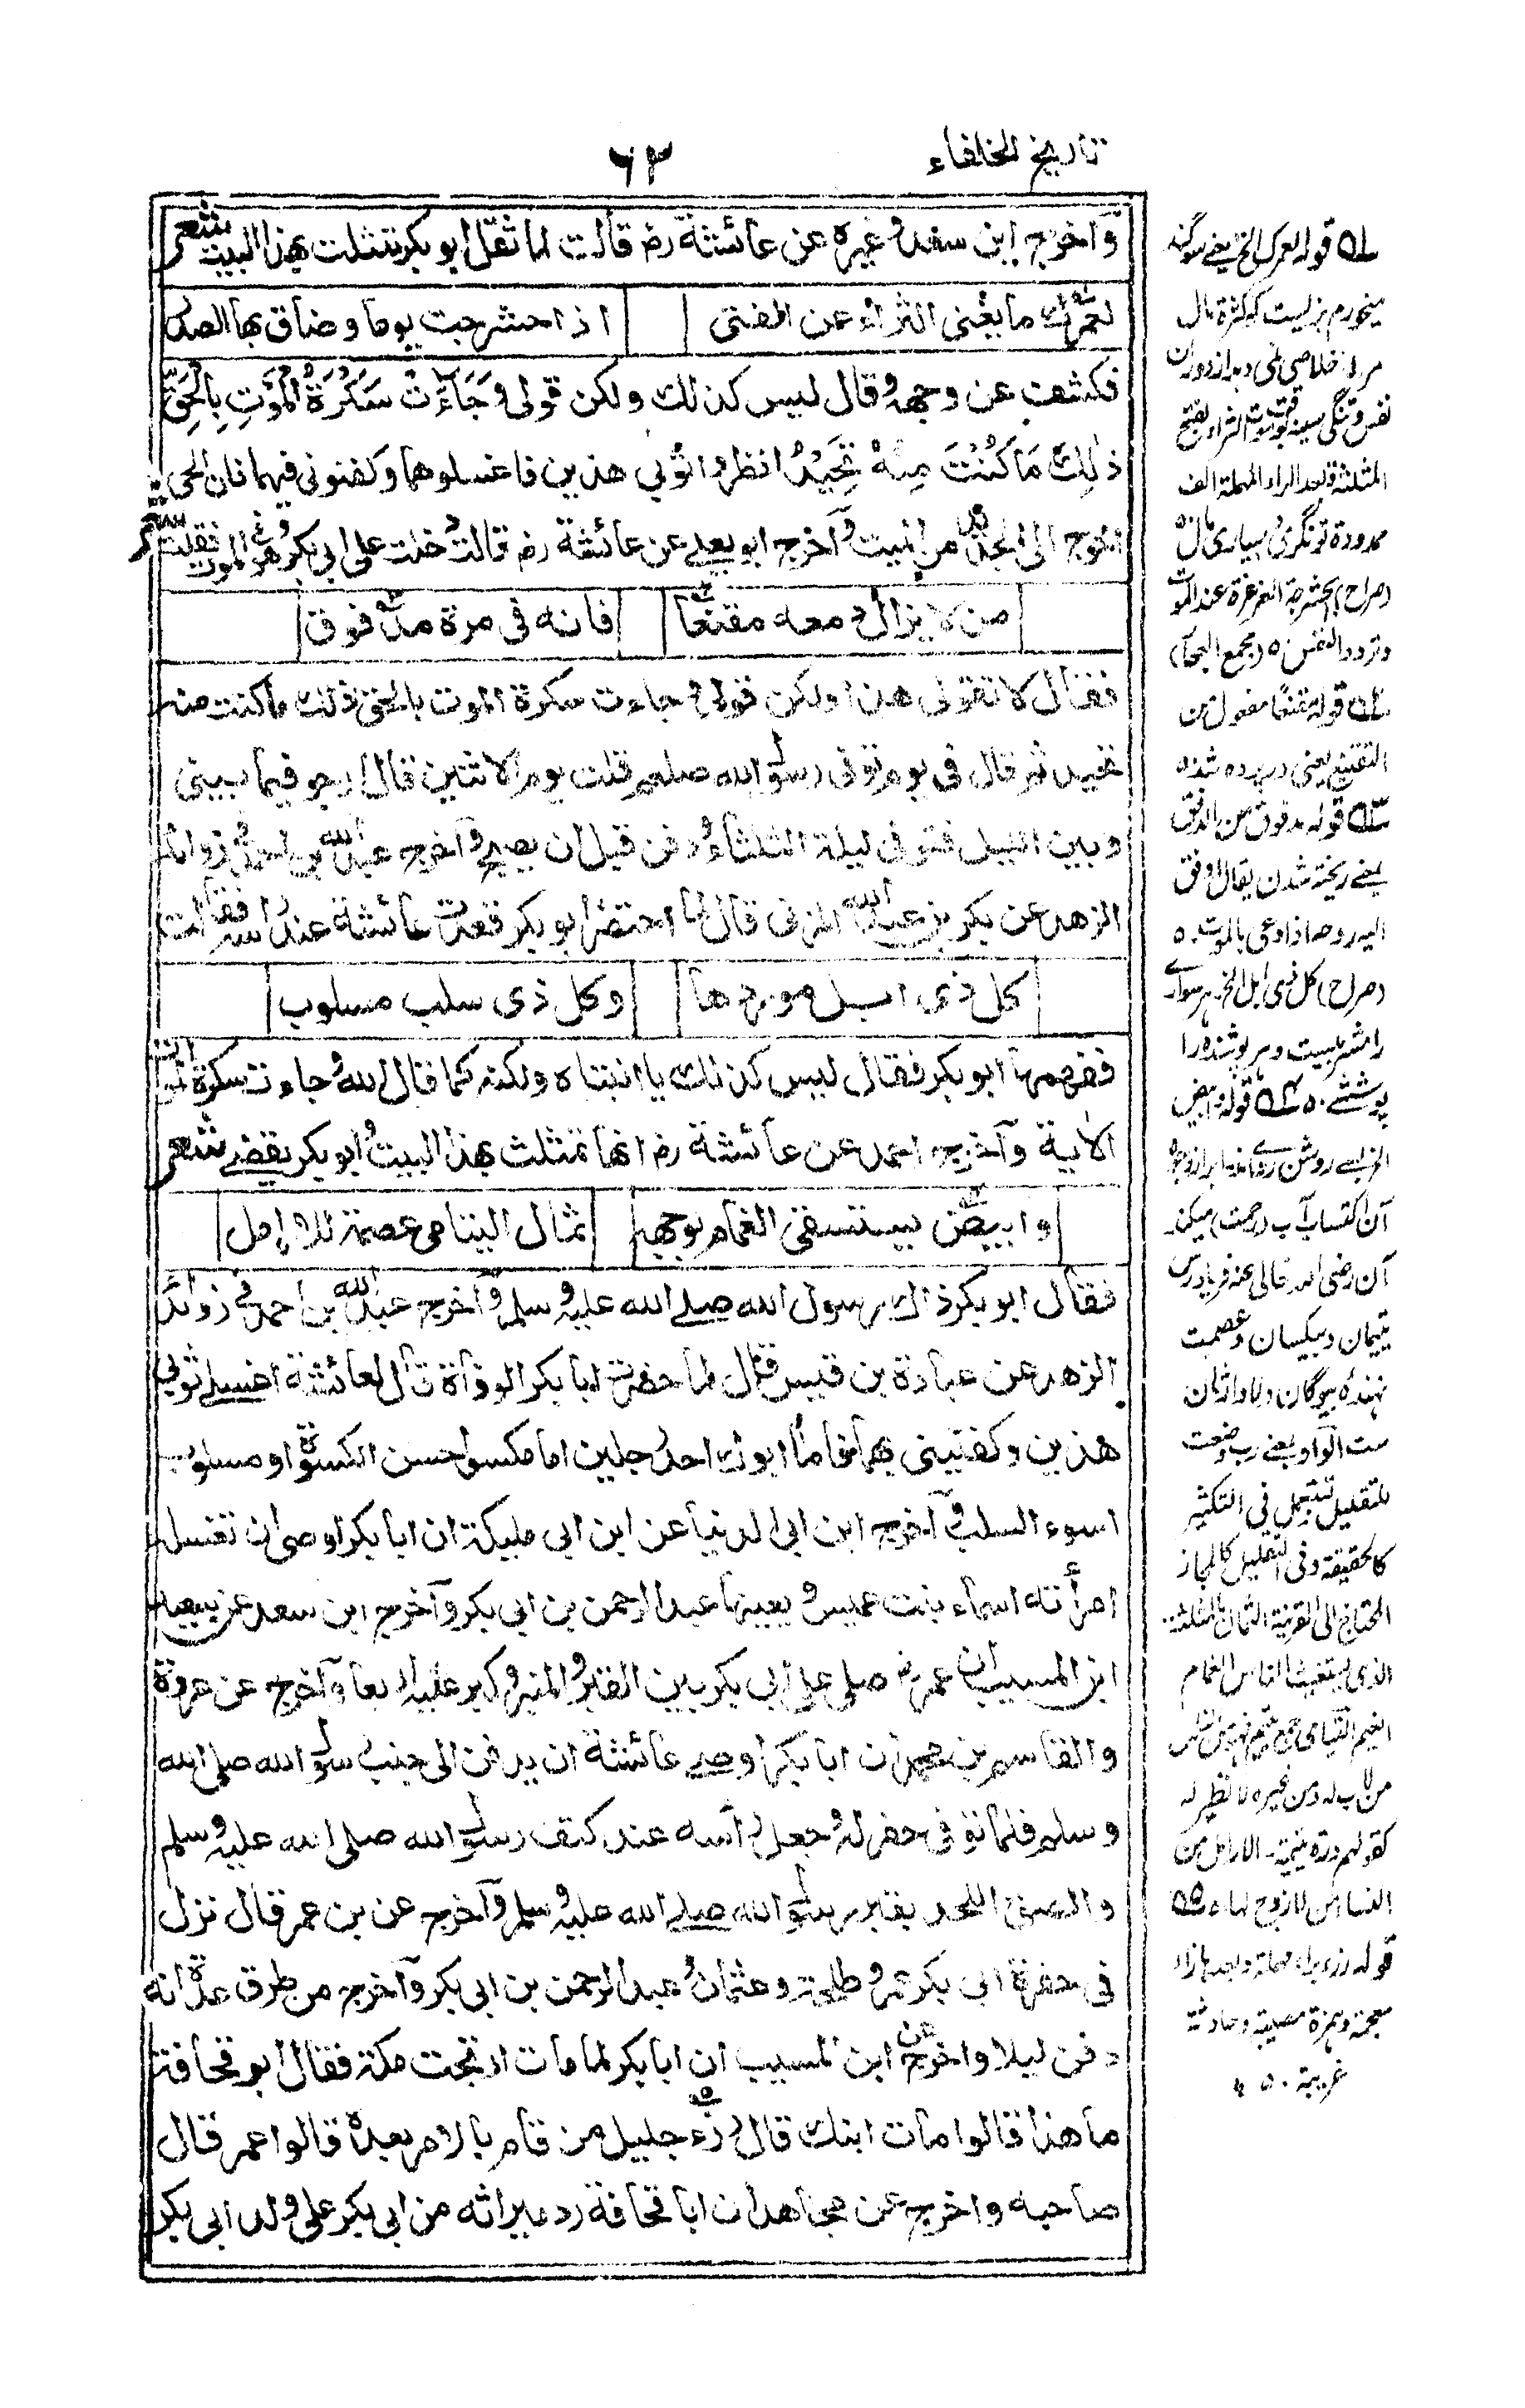 تاريخ الخلفاء
٦٣
وآخرج ابن سعد وغيره عن عائشة رض قالت لما ثقل ابو بكر تمثلت بهذا البيت شعر
لعمرك ما يغنى الثراء عن الفتى اذا حشرجت يوما وضاق بها الصدر
فكشف عن وجهه وقال ليس كذلك ولكن قولى وَجَآءَتْ سَكْرَةُ الْمَوْتِ بِالْحَقِّ
ذٰلِكَ مَا كُنْتَ مِنْهُ تَحِيْدُ انظروا ثوبي هذين فاغسلوهما وكفنونى فيهما فان الحى
احوج الى الجديد من الميت وآخرج ابو يعلى عن عائشة رض قالت دخلت على ابى بكر وهو فى الموت فقلت شعر
من لا يزال دمعه مقنعا فانه فى مرة مدفوق
فقال لا تقولى هذا ولكن قولى وجاءت سكرة الموت بالحق ذلك ما كنت منه
تحيد ثم قال فى اى يوم توفى رسول الله صلعم قلت يوم الاثنين قال ارجو فيما بينى
وبين الليل فتوفى ليلة الثلثاء ودفن قبل ان يصبح وآخرج عبد الله بن احمد فى زوائد
الزهد عن بكر بن عبد الله المزنى قال لما احتضر ابو بكر قعدت عائشة عند راسه فقالت
كل ذى ابل موردها وكل ذى سلب مسلوب
ففهمها ابو بكر فقال ليس كذلك يا ابنتاه ولكنه كما قال الله وجاءت سكرة الموت
الاٰية وآخرج احمد عن عائشة رض انها تمثلت بهذا البيت وابو بكر يقضى شعر
وابيض يستسقى الغمام بوجهه ثمال اليتامى عصمة للارامل
فقال ابو بكر ذاك رسول الله صلى الله عليه وسلم وآخرج عبد الله بن احمد فى زوائد
الزهد عن عبادة بن قيس قال لما حضرت ابا بكر الوفاة قال لعائشة اغسلى ثوبى
هذين وكفنينى بهما فانما ابوك احد رجلين اما مكسوا حسن الكسوة او مسلوب
اسوء السلب وآخرج ابن ابى الدنيا عن ابن ابى مليكة ان ابا بكر اوصى ان تغسله
امرأته اسماء بنت عميس ويعينها عبد الرحمن بن ابى بكر وآخرج ابن سعد عن سعيد
ابن المسيب ان عمر رض صلى على ابى بكر بين القبر والمنبر وكبر عليه اربعا وآخرج عن عروة
والقاسم بن محمد ان ابا بكر اوصى عائشة ان يدفن الى جنب رسول الله صلى الله
وسلم فلما توفى حفر له وجعل رأسه عند كتف رسول الله صلى الله عليه وسلم
والصق اللحد بقبر رسول الله صلى الله عليه وسلم وآخرج عن بن عمر قال نزل
فى حفرة ابى بكر عمر وطلحة وعثمان وعبد الرحمن بن ابى بكر وآخرج من طرق عدة انه
دفن ليلا واخرج عن ابن المسيب ان ابا بكر لما مات ارتجت مكة فقال ابو قحافة
ما هذا قالوا مات ابنك قال رزء جليل من قام بالامر بعده قالوا عمر قال
صاحبه واخرج عن مجاهد ان ابا قحافة رد ميراثه من ابى بكر على ولد ابى بكر
قوله لعمرك الخ يعنے سوگند
ميخورم بزيست كه كثرة مال
نفس وتنگى سينه الثراء بفتح
المثلثة وبعد الراء المهملة الف
ممدودة تونگرى وبسيارى مال
(صراح) الحشرجة الغرغرة عند الموت
وتردد النفس (مجمع البحار)
قوله مقنعا مفعول من
التقنيع يعنى در پرده شده
قوله مدفوق من الدفق
يعنے ريخته شدن يقال دفق
اليه روحه اذا دعى بالموت
(صراح) كل ذى ابل الخ
قوله وابيض
آن رضى الله تعالى عنه فريادرس
يتيمان وبيكسان وعصمت
للتقليل تستعمل فى التكثير
كالحقيقة وفى التقليل كالمجاز
المحتاج الى القرينة الثمال بالمثلثة
الغمام
كقولهم درة يتيمة الارامل من
النساء من لا زوج لها
قوله رزء براء مهملة وبعدها زاء
معجمة وهمزة مصيبة وحادثة
غريبة